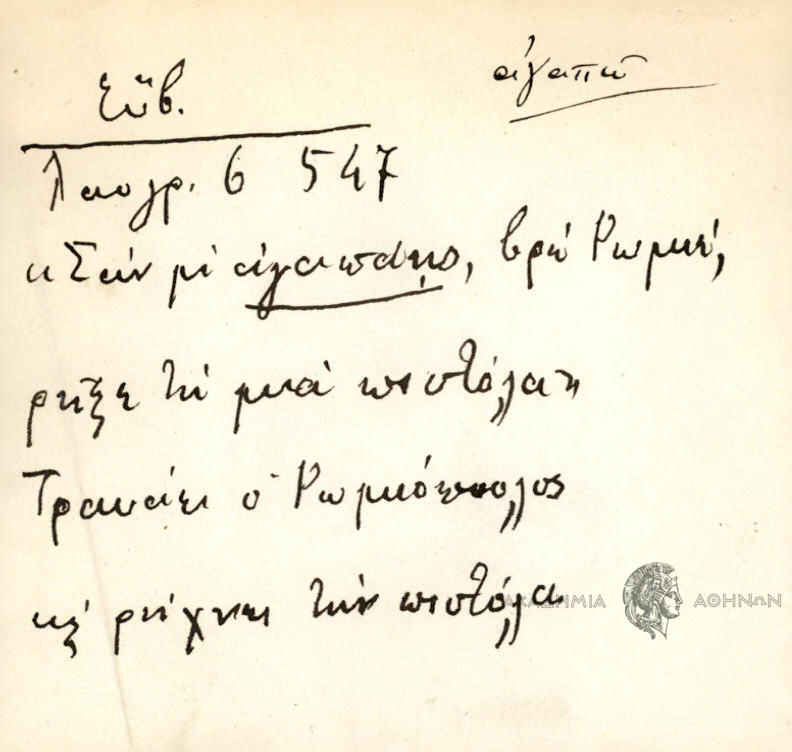 Εὔβ.
ἀγαπῶ
Λαογρ. 6 547
κ Σὰν μὲ ἀγαπᾶς, βρὲ Ρωμιέ,
ρῆξε τὴ μιὰ πιστόλα κ
Τραυάει ὁ Ρωμιόπουλος
κὶ ρήχνει τὴν πιστόλα
ΑΚΑΔΗΜΙΑ ΑΘΗΝΩΝ